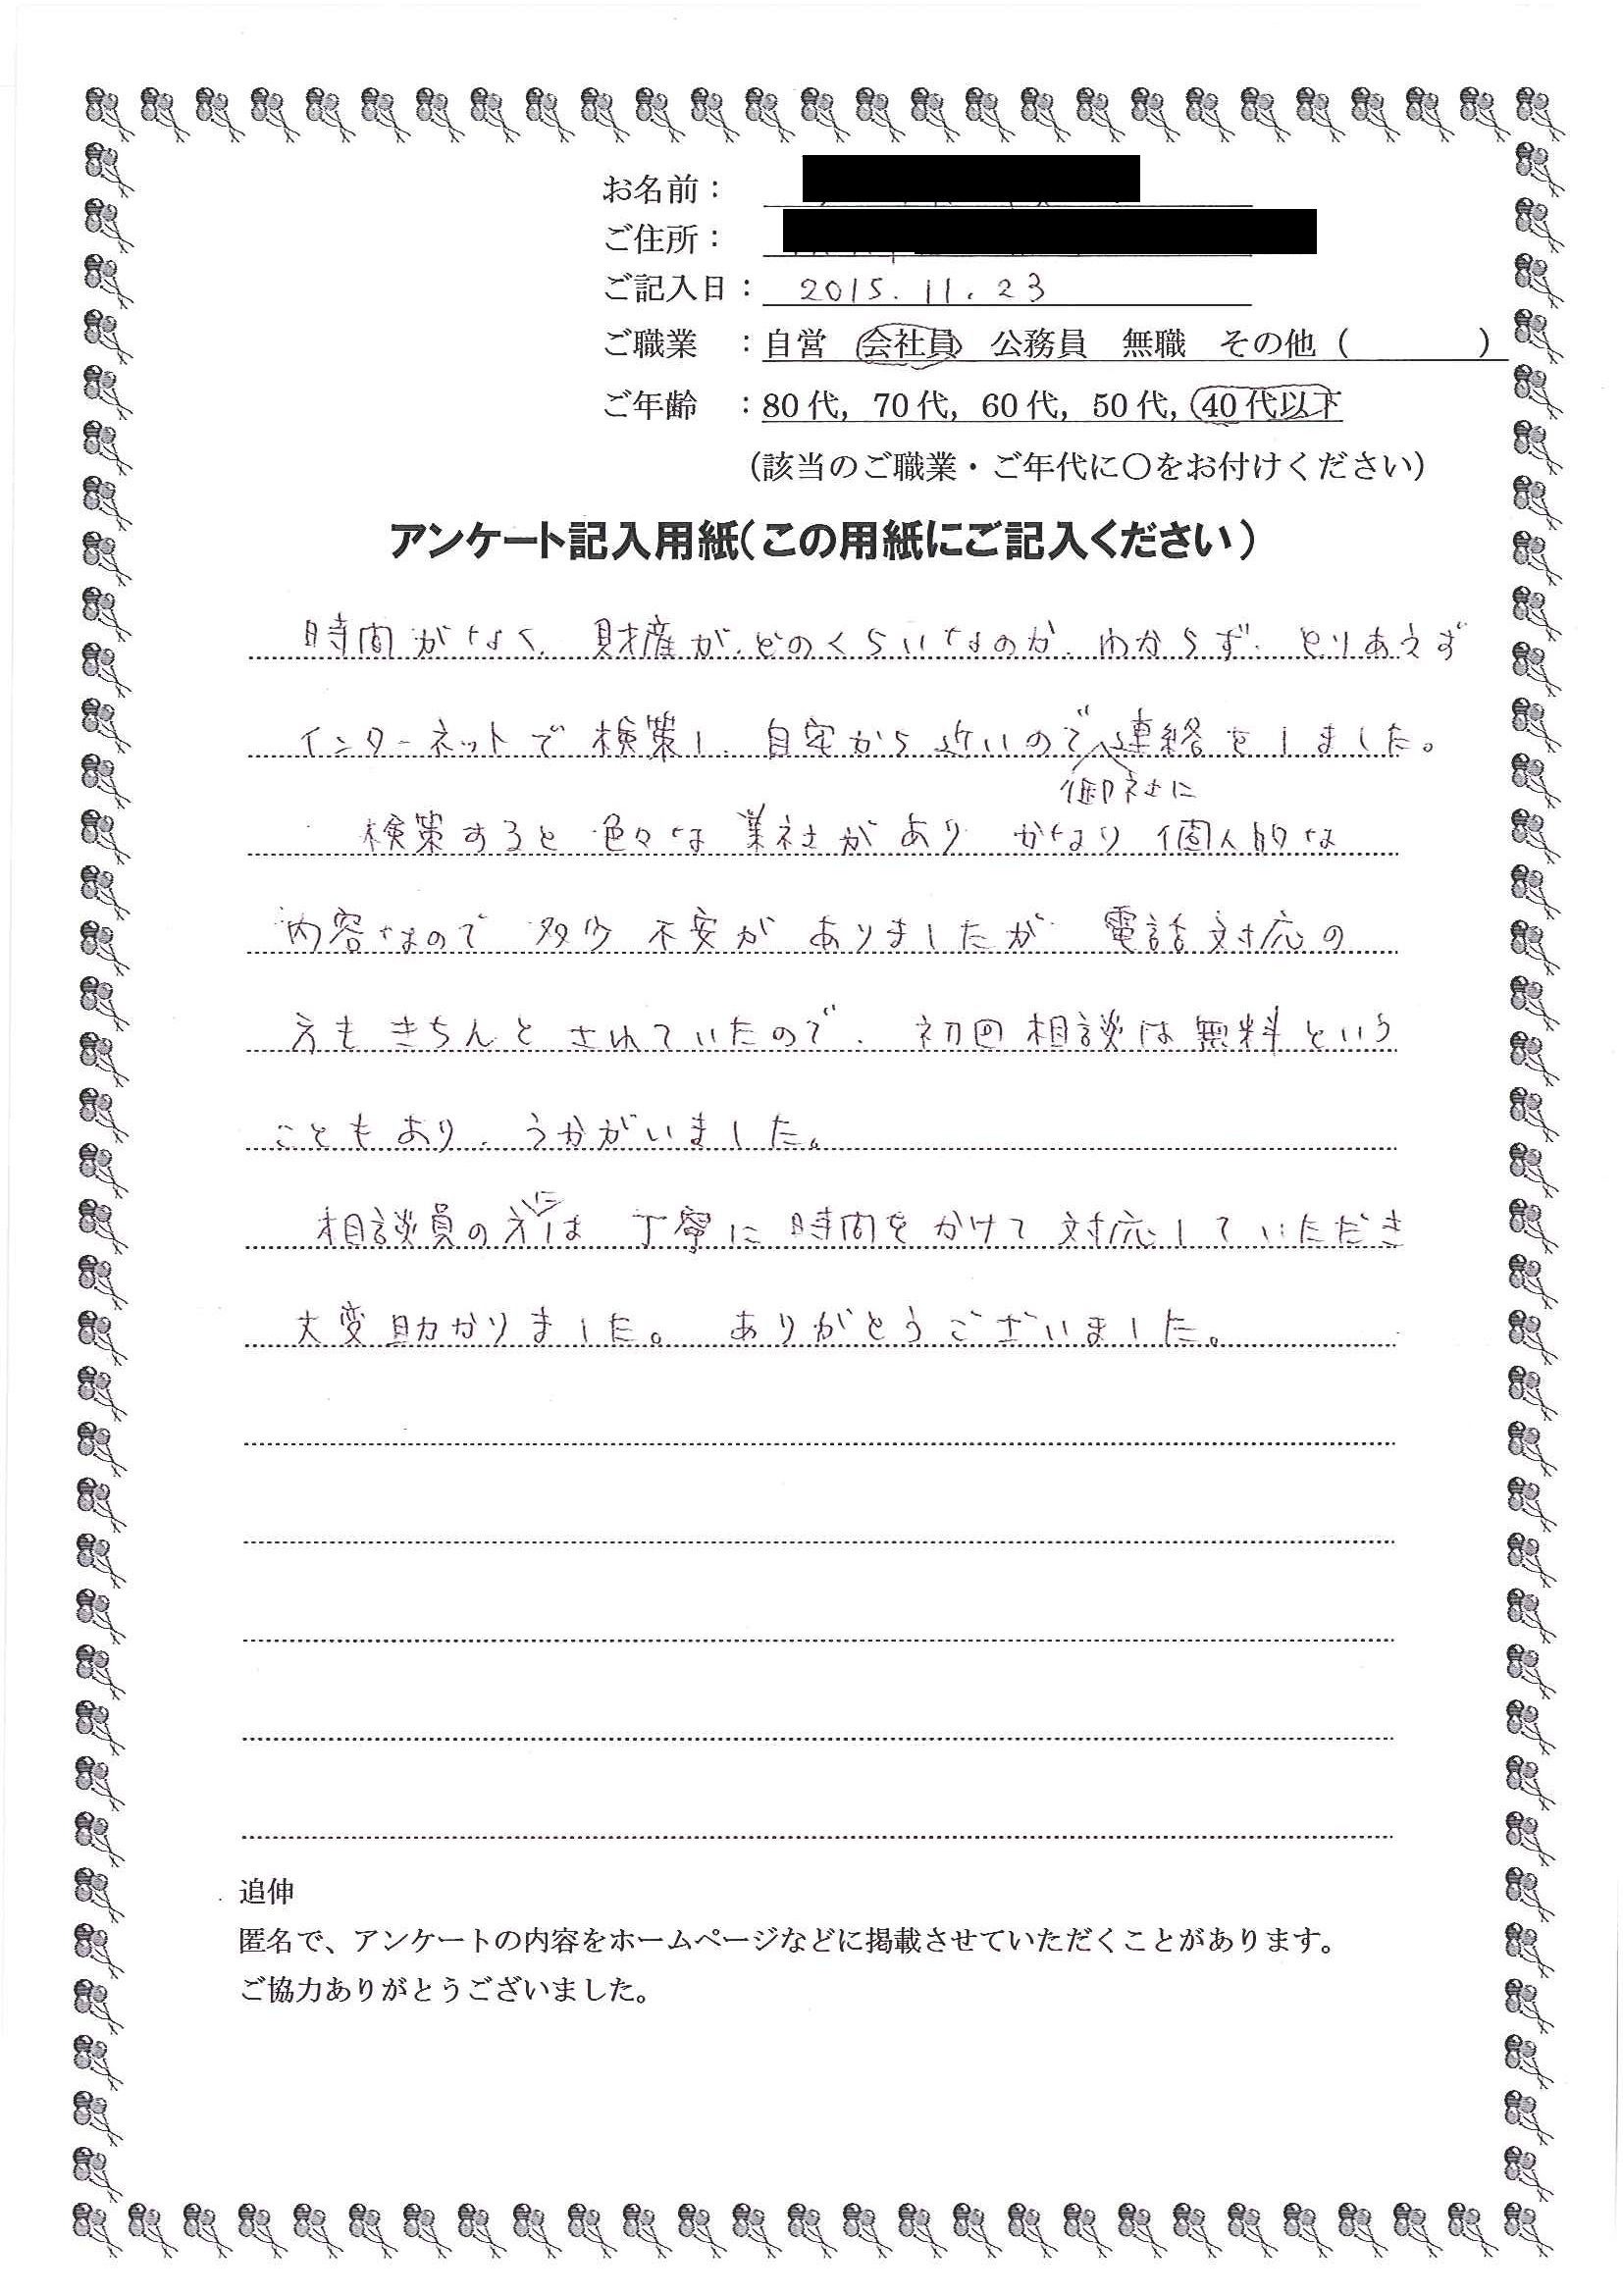 お名前：
ご住所：
ご記入日： 2015.11.23
ご職業　：自営　会社員　公務員　無職　その他（　　　　）
ご年齢　：80代，70代，60代，50代，40代以下
（該当のご職業・ご年代に〇をお付けください）
アンケート記入用紙（この用紙にご記入ください）
時間がなく、財産が、どのくらいなのか、わからず、とりあえず
インターネットで検策し、自宅から近いので御社に連絡をしました。
検策すると色々な業社があり かなり個人的な
内容なので 多少 不安が ありましたが 電話対応の
方も きちんと されていたので、初回相談は無料という
こともあり、うかがいました。
相談員の方には 丁寧に 時間をかけて 対応していただき
大変助かりました。 ありがとうございました。
追伸
匿名で、アンケートの内容をホームページなどに掲載させていただくことがあります。
ご協力ありがとうございました。